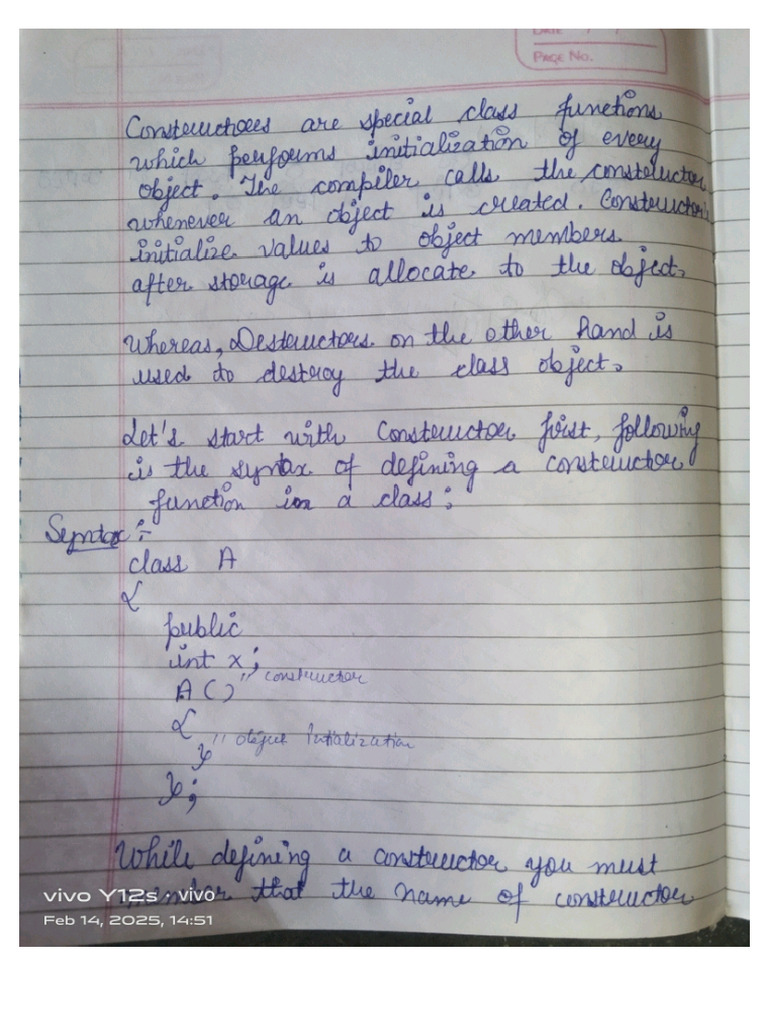 DATE / /
PAGE NO.
Constructors are special class functions
which performs initialization of every
object. The compiler calls the constructor
whenever an object is created. Constructor's
initialize values to object members
after storage is allocate to the object.
Whereas, Destructors on the other hand is
used to destroy the class object.
Let's start with Constructor first, following
is the syntax of defining a constructor
function in a class :
Syntax :-
class A
{
public
int x ;
" constructor
A ()
{
" object Intialization
}
} ;
While defining a constructor you must
that the name of constructor
vivo Y12s · vivo
Feb 14, 2025, 14:51